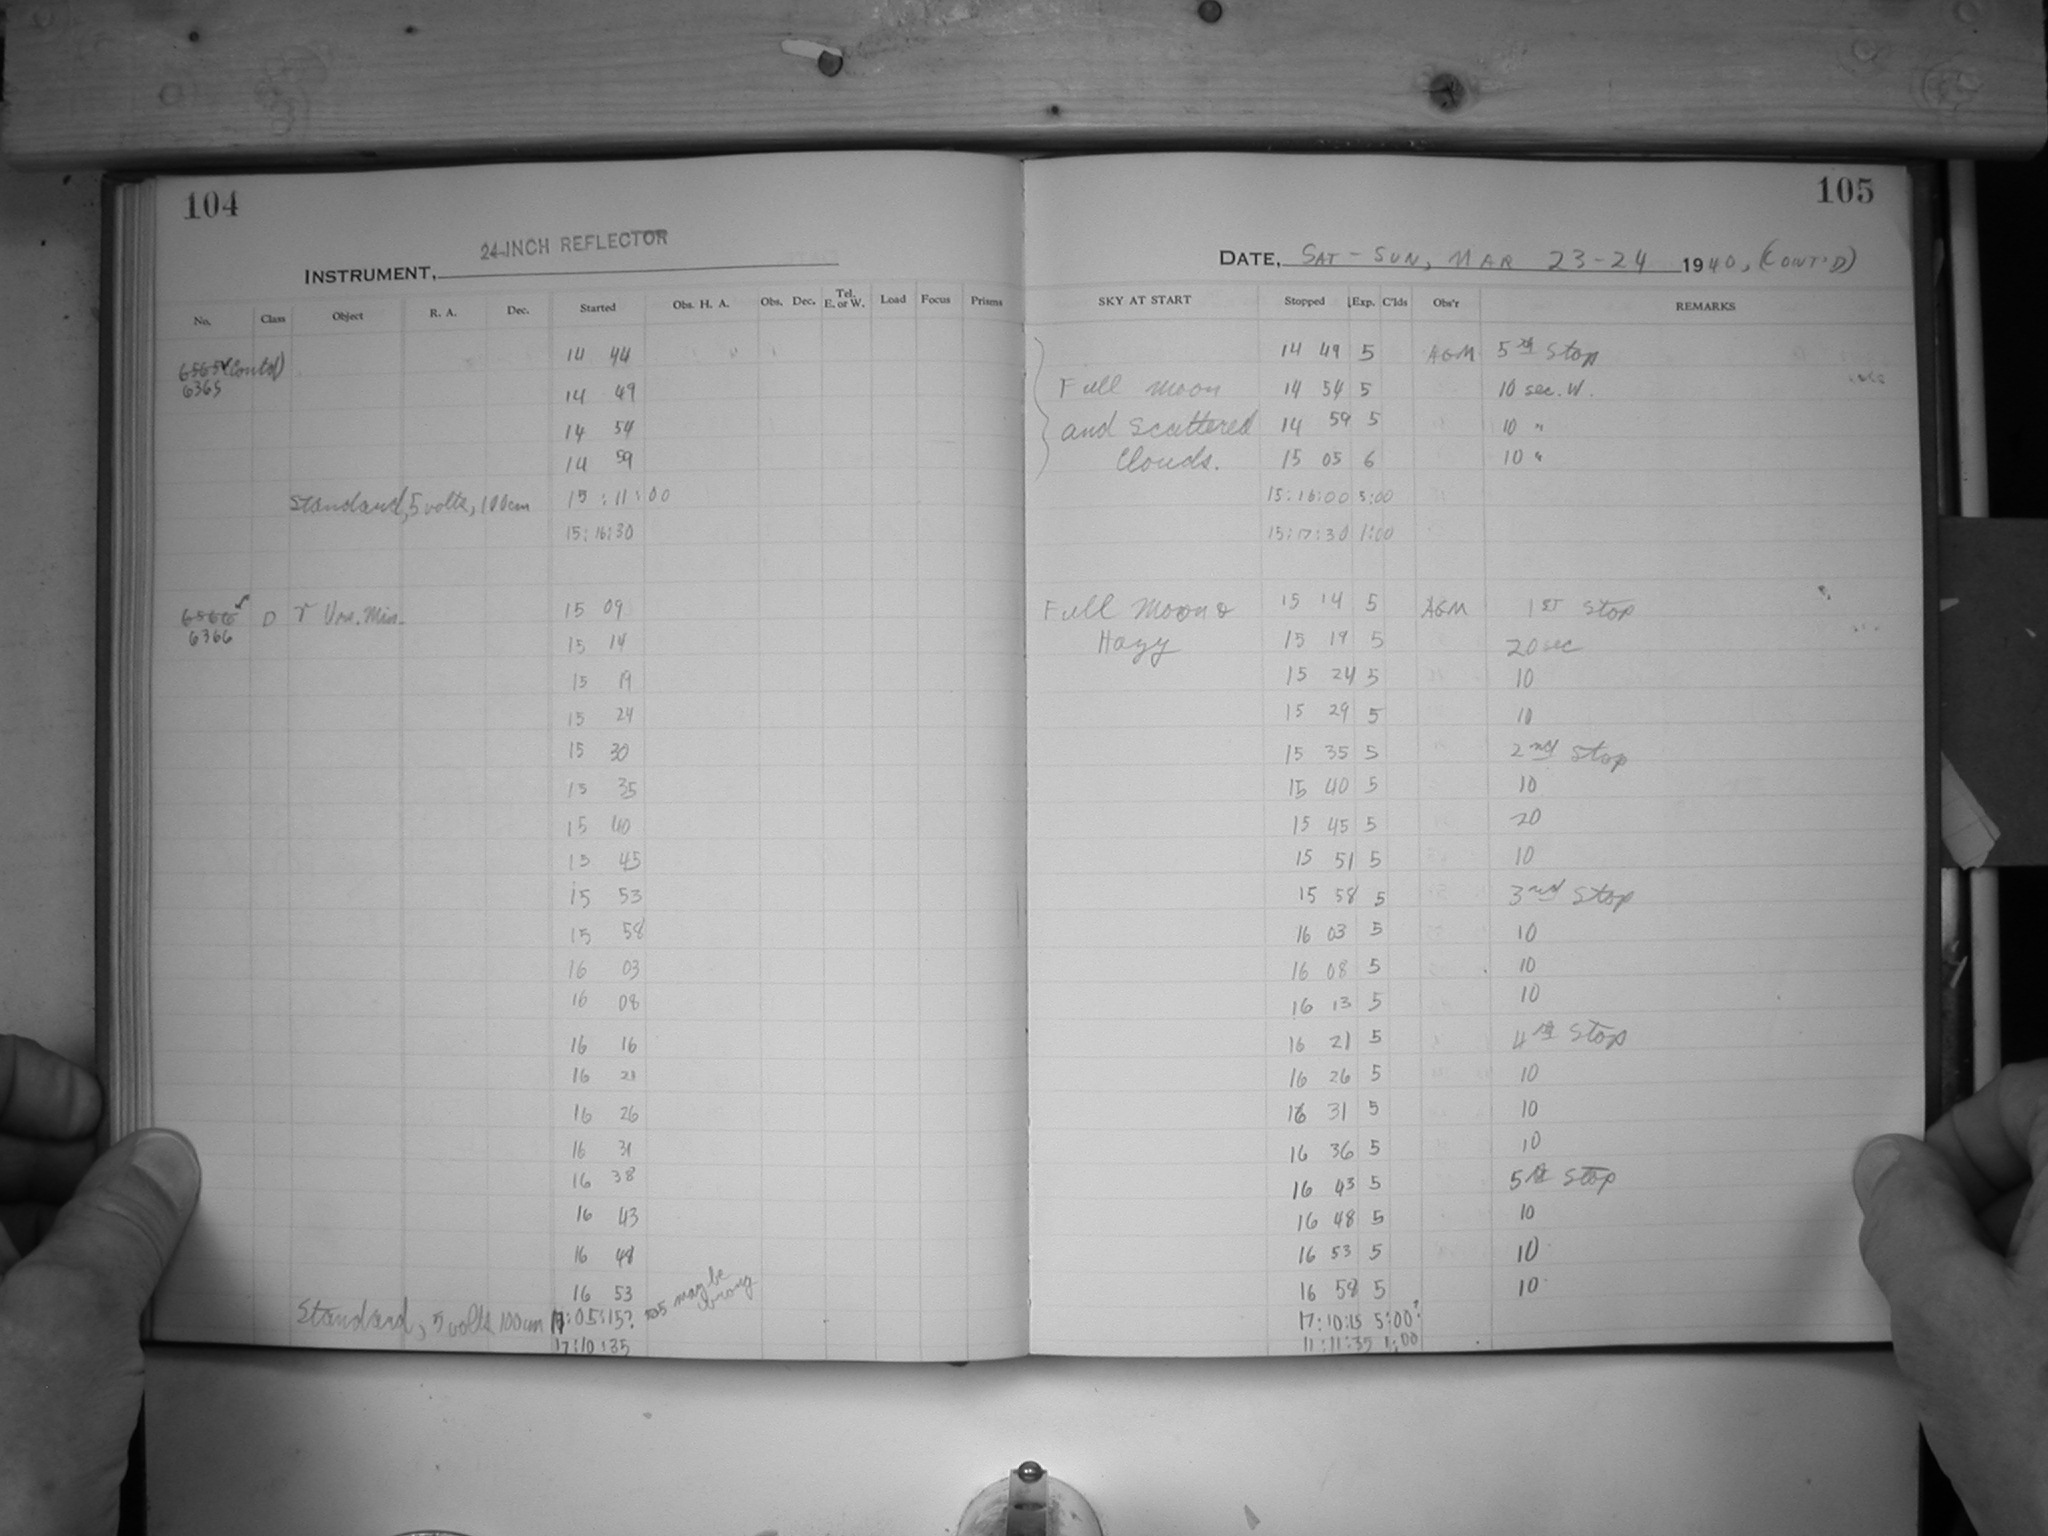 104
24-INCH REFLECTOR
INSTRUMENT,
No. Class Object R. A. Dec. Started Obs. H. A. Obs. Dec. Tel. E. or W. Load Focus Prisms
6565 (Contd) 14 44
6365 14 49
14 54
14 59
Standard, 5 volts, 100cm 15:11:00
15:16:30
6566 D Urs. Min. 15 09
6366 15 14
15 19
15 24
15 30
15 35
15 40
15 45
15 53
15 58
16 03
16 08
16 16
16 21
16 26
16 31
16 38
16 43
16 48
16 53
may be wrong
Standard, 5 volts 100cm 17:05:15?
17:10:35
105
DATE, SAT - SUN, MAR 23-24 1940, (CONT'D)
SKY AT START Stopped Exp. C'lds Obs'r REMARKS
14 49 5 AGM 5th Stop
Full moon 14 54 5 10 sec. W.
and scattered 14 59 5 10 "
Clouds. 15 05 6 10 "
15:16:00 5:00
15:17:30 1:00
Full Moon & 15 14 5 AGM 1ST Stop
Hazy 15 19 5 20 sec
15 24 5 10
15 29 5 10
15 35 5 2nd Stop
15 40 5 10
15 45 5 20
15 51 5 10
15 58 5 3rd Stop
16 03 5 10
16 08 5 10
16 13 5 10
16 21 5 4th Stop
16 26 5 10
16 31 5 10
16 36 5 10
16 43 5 5th Stop
16 48 5 10
16 53 5 10
16 58 5 10
17:10:15 5:00?
11:11:35 1:00